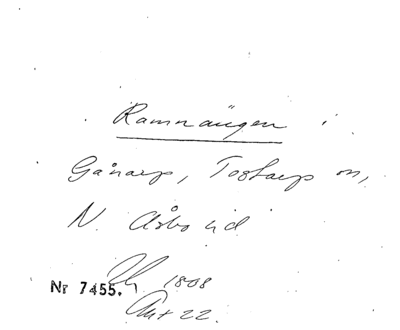 Ramnängen i
Gånarp, Tostarp sn,
N. Åsbo hd
1808
Nr 7455.
Akt 22.